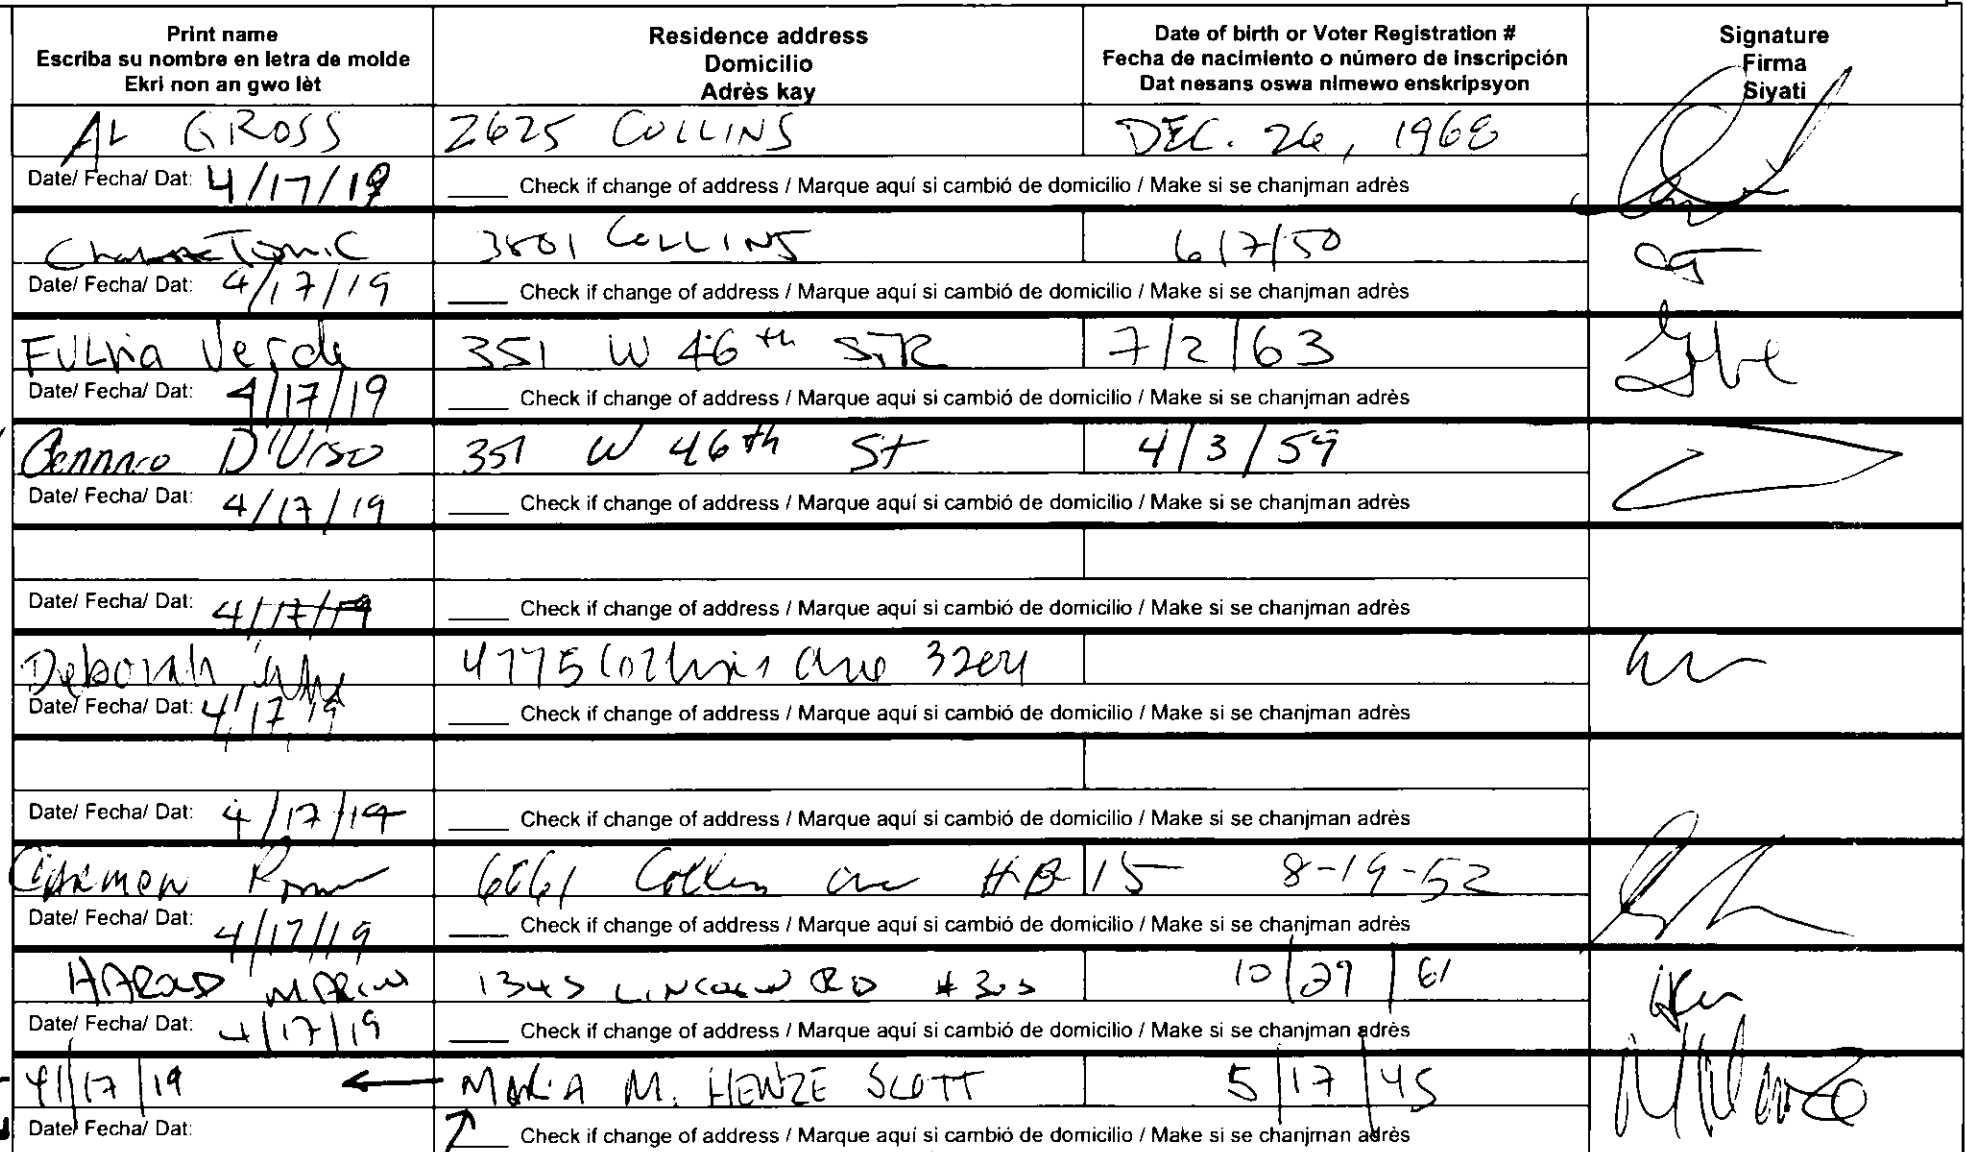 Print name
Escriba su nombre en letra de molde
Ekri non an gwo lèt
Residence address
Domicilio
Adrès kay
Date of birth or Voter Registration #
Fecha de nacimiento o número de inscripción
Dat nesans oswa nimewo enskripsyon
Signature
Firma
Siyati
AL GROSS 2625 COLLINS DEC. 26, 1968
Date/ Fecha/ Dat: 4/17/19 ____ Check if change of address / Marque aquí si cambió de domicilio / Make si se chanjman adrès
Tomic 3801 COLLINS 6/7/50
Date/ Fecha/ Dat: 4/17/19 ____ Check if change of address / Marque aquí si cambió de domicilio / Make si se chanjman adrès
FULVIA Verde 351 W 46th STR 7/2/63
Date/ Fecha/ Dat: 4/17/19 ____ Check if change of address / Marque aquí si cambió de domicilio / Make si se chanjman adrès
D'Urso 351 W 46th St 4/3/59
Date/ Fecha/ Dat: 4/17/19 ____ Check if change of address / Marque aquí si cambió de domicilio / Make si se chanjman adrès
Date/ Fecha/ Dat: 4/17/19 ____ Check if change of address / Marque aquí si cambió de domicilio / Make si se chanjman adrès
Deborah 4775 Collins Ave
Date/ Fecha/ Dat: 4/17/19 ____ Check if change of address / Marque aquí si cambió de domicilio / Make si se chanjman adrès
Date/ Fecha/ Dat: 4/17/19 ____ Check if change of address / Marque aquí si cambió de domicilio / Make si se chanjman adrès
Carmen Collins 8-19-52
Date/ Fecha/ Dat: 4/17/19 ____ Check if change of address / Marque aquí si cambió de domicilio / Make si se chanjman adrès
HAROLD MARIN 1345 LINCOLN RD #305 10/29/61
Date/ Fecha/ Dat: 4/17/19 ____ Check if change of address / Marque aquí si cambió de domicilio / Make si se chanjman adrès
4/17/19 ← MARIA M. HENZE SCOTT 5/17/45
Date/ Fecha/ Dat: ____ Check if change of address / Marque aquí si cambió de domicilio / Make si se chanjman adrès